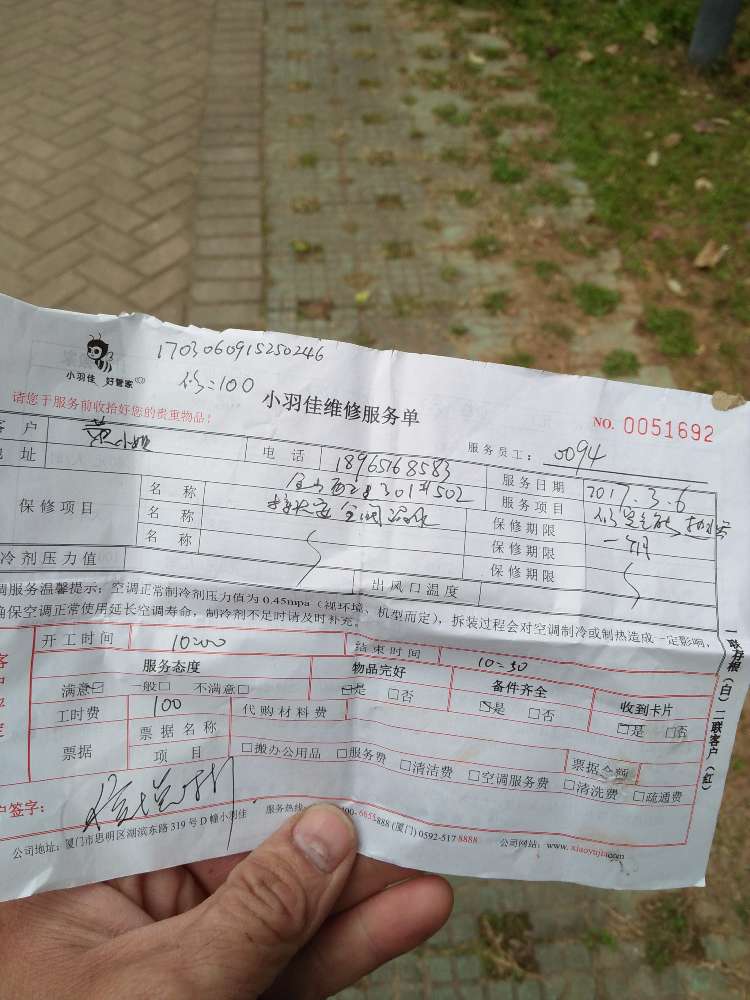 1703060915250246
小羽佳 好管家
修:100
小羽佳维修服务单
请您于服务前收拾好您的贵重物品!
NO. 0051692
客户 黄小姐 电话 18965168583 服务员工: 0094
地址 301#502 服务日期 2017.3.6
保修项目 名称 服务项目
名称 保修期限 一个月
名称 保修期限
保修期限
冷剂压力值 出风口温度
调服务温馨提示:空调正常制冷剂压力值为 0.45mpa(视环境、机型而定),拆装过程会对空调制冷或制热造成一定影响,
确保空调正常使用延长空调寿命,制冷剂不足时请及时补充。
开工时间 10:00 结束时间 10:50
服务态度 物品完好 备件齐全 收到卡片
满意☑ 一般□ 不满意□ ☑是 □否 ☑是 □否 □是 □否
工时费 100 代购材料费
票据 票据名称 票据金额
项目 □搬办公用品 □服务费 □清洁费 □空调服务费 □清洗费 □疏通费
户签字:
公司地址:厦门市思明区湖滨东路 319 号 D 幢小羽佳 服务热线: 400-6655888 (厦门) 0592-517 8888 公司网站: www.xiaoyujia.com
一联存根(白)二联客户(红)